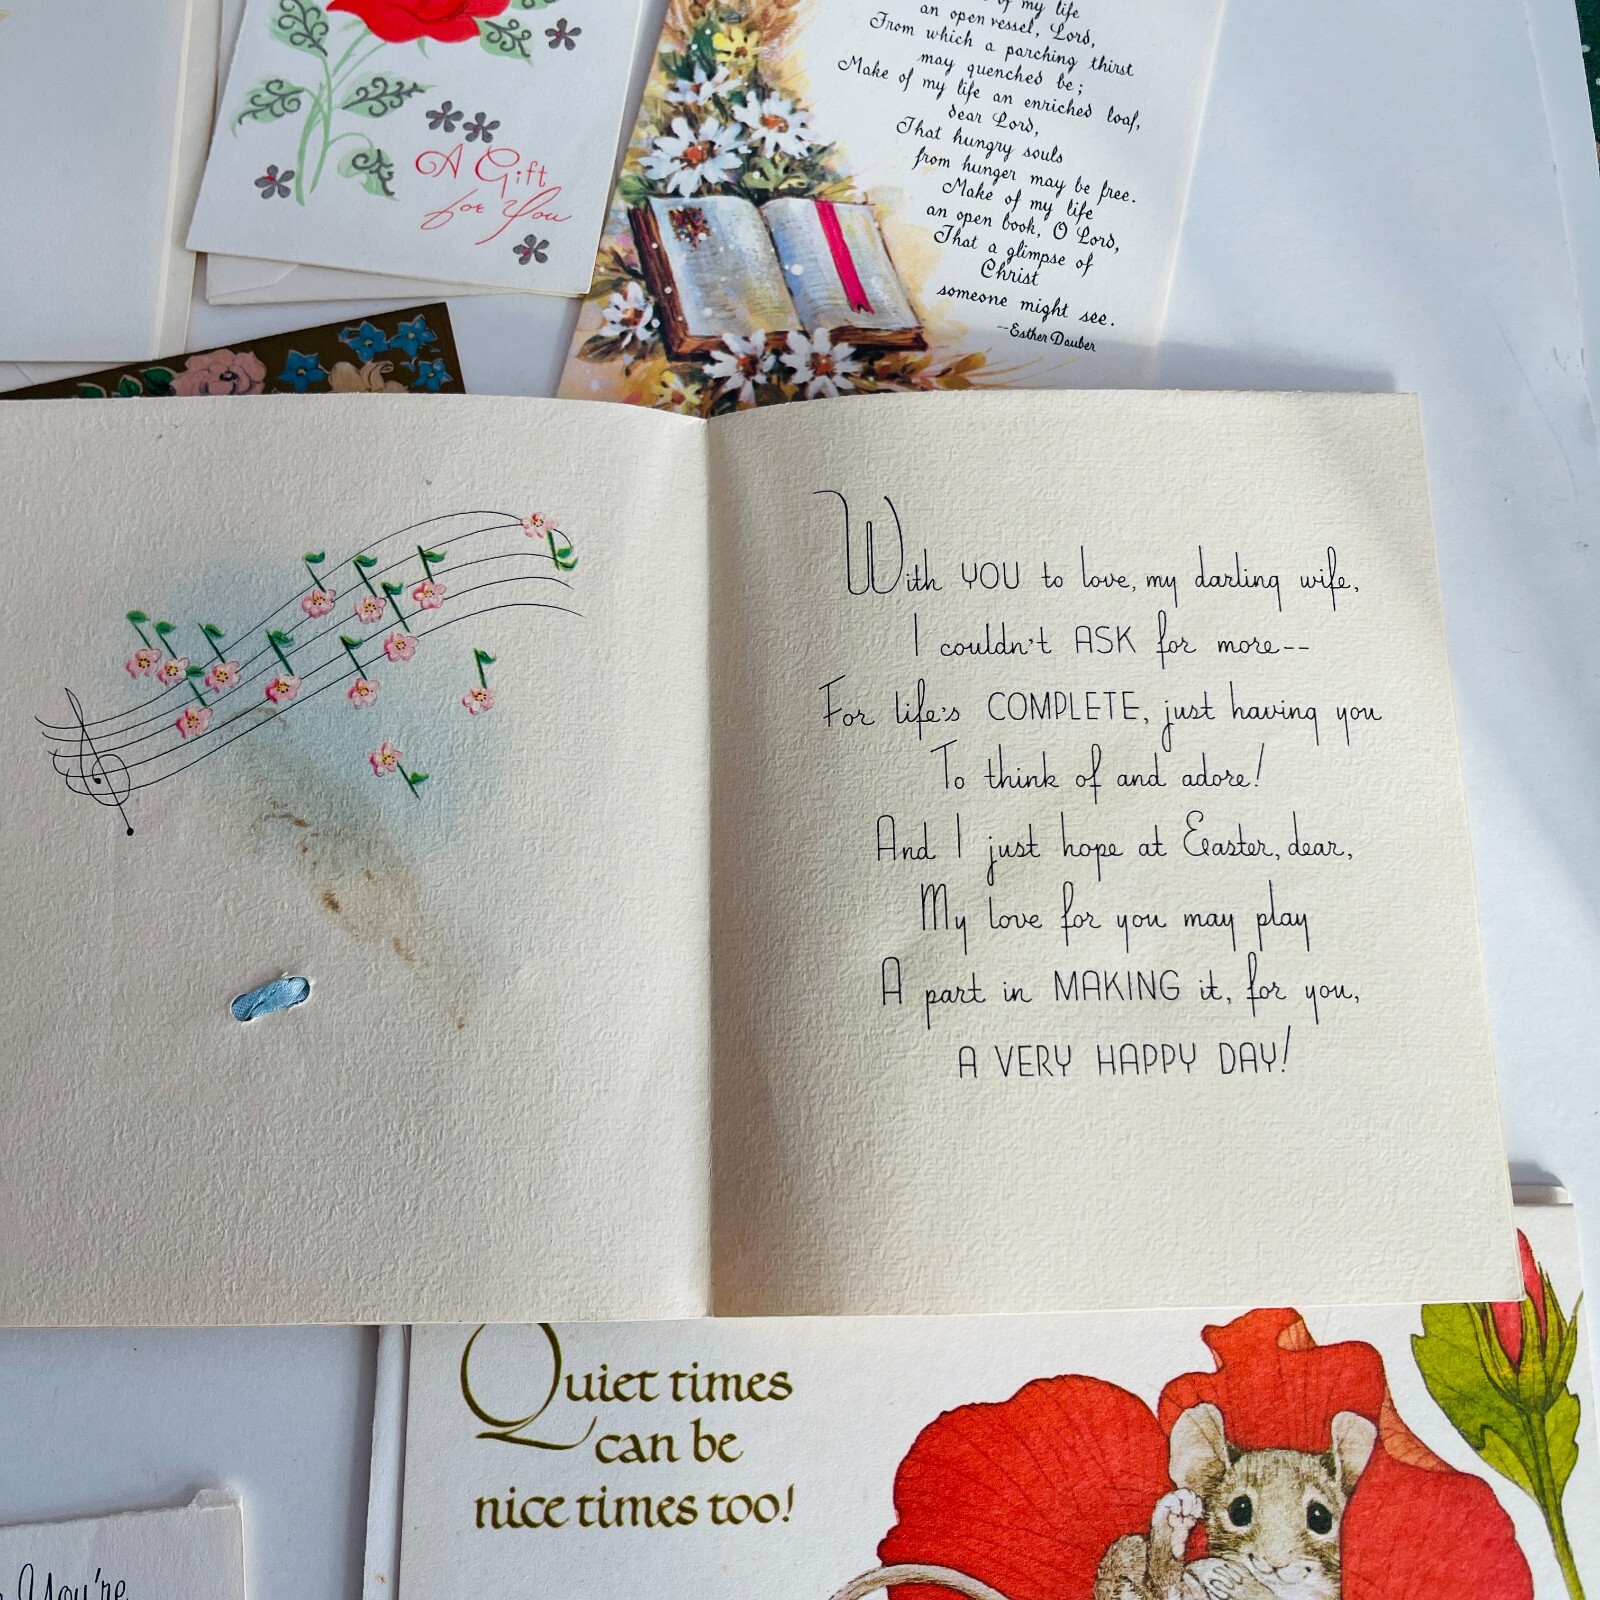 A Gift
for You
of my life
an open vessel, Lord,
From which a parching thirst
may quenched be;
Make of my life an enriched loaf,
dear Lord,
That hungry souls
from hunger may be free.
Make of my life
an open book, O Lord,
That a glimpse of
Christ
someone might see.
--Esther Dauber
With YOU to love, my darling wife,
I couldn't ASK for more--
For life's COMPLETE, just having you
To think of and adore!
And I just hope at Easter, dear,
My love for you may play
A part in MAKING it, for you,
A VERY HAPPY DAY!
Quiet times
can be
nice times too!
You're